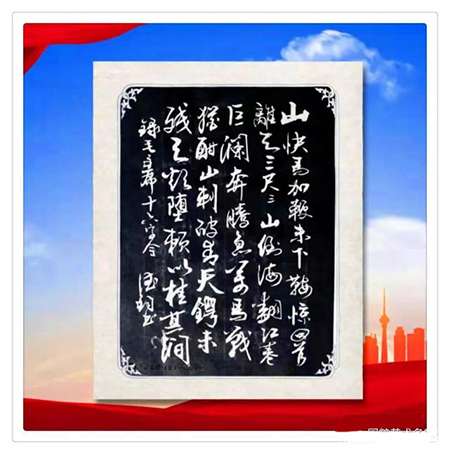 山快馬加鞭未下鞍惊回首
離天三尺三山倒海翻江卷
巨澜奔腾急万馬戰
猶酣山刺破青天锷未
残天欲堕赖以柱其间
録毛主席十六字令